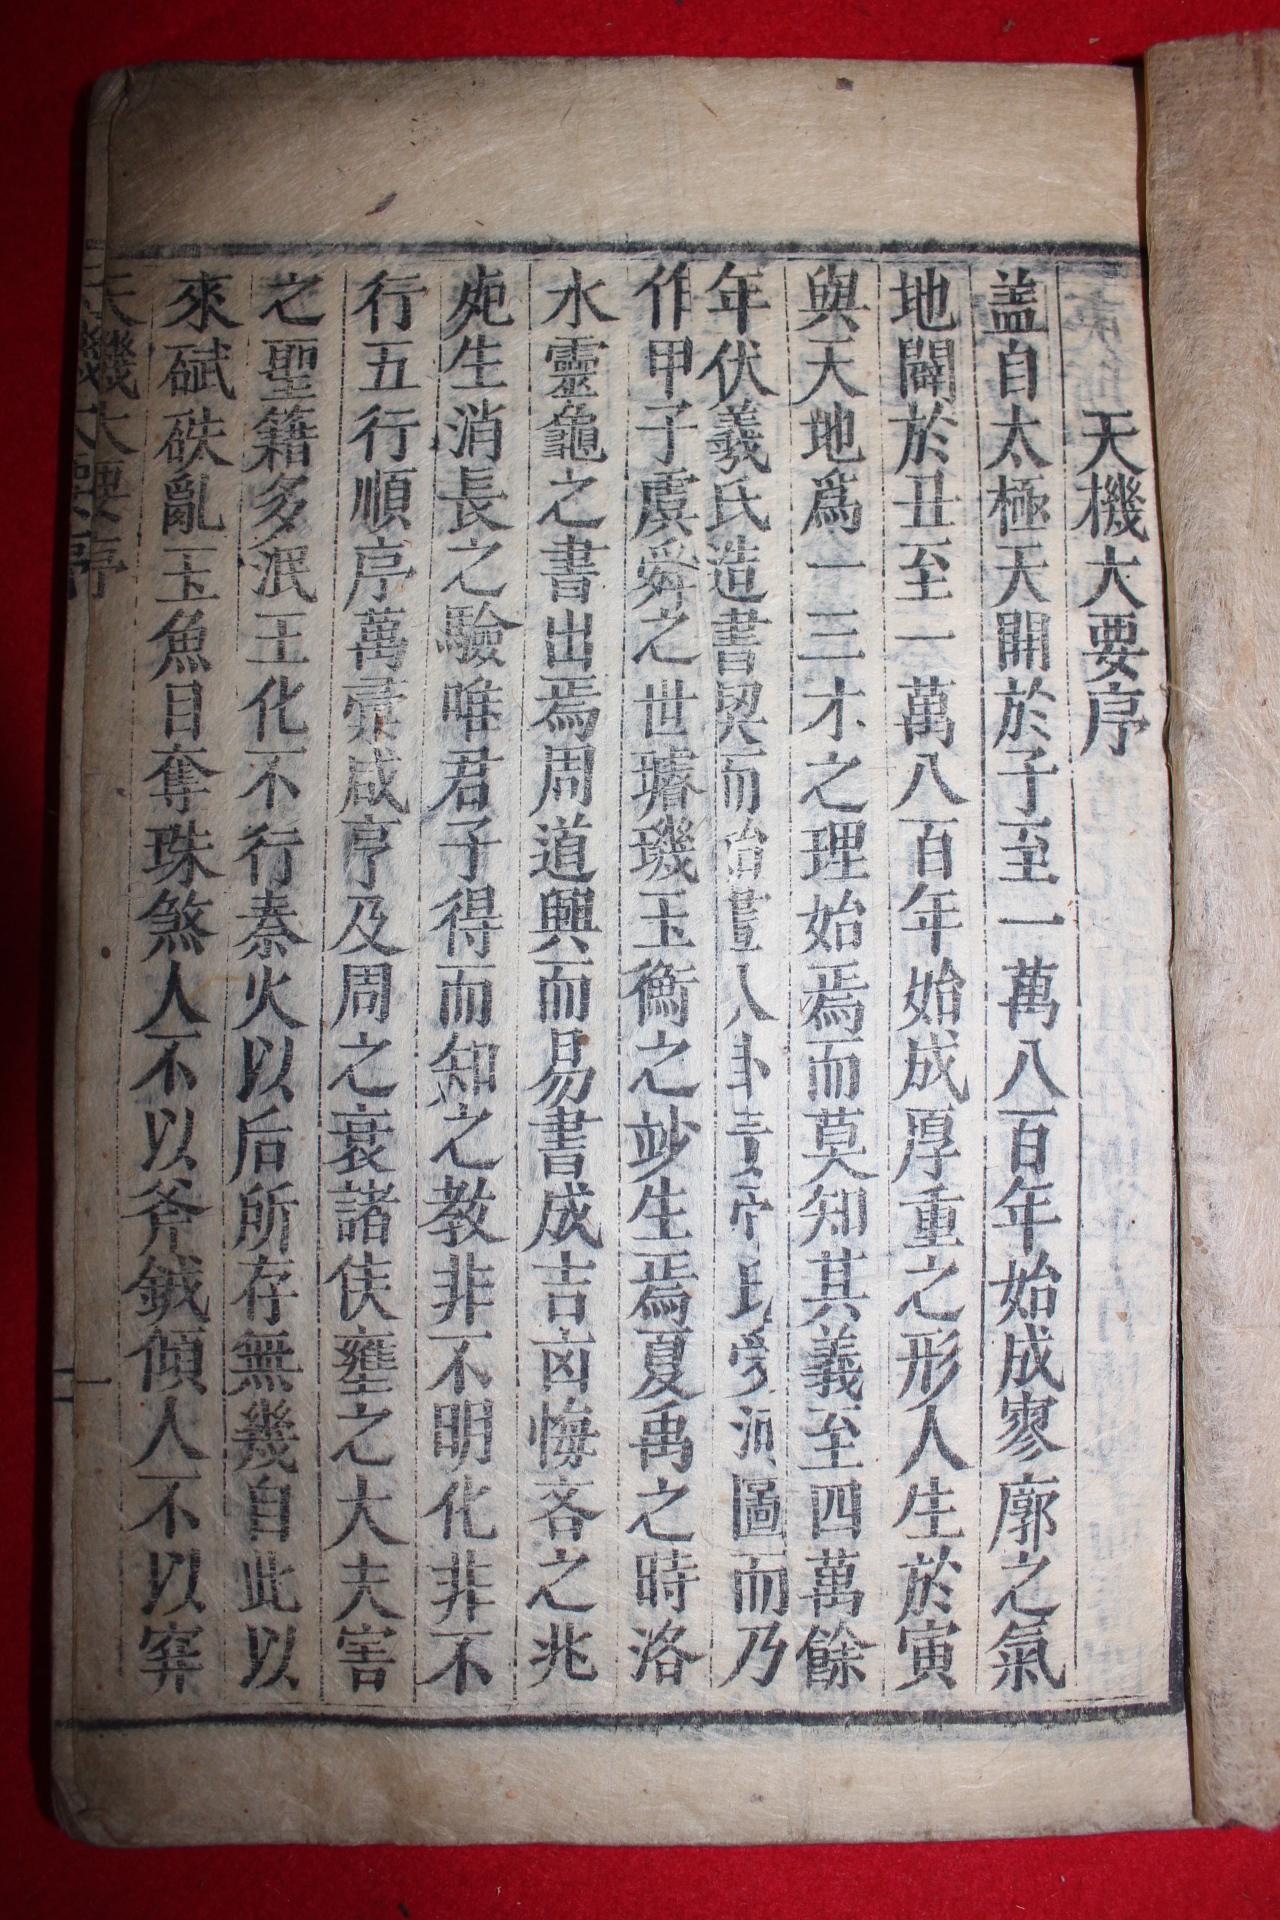 天機大要序
盖自太極天開於子至一萬八百年始成寥廓之氣
地闢於丑至一萬八百年始成厚重之形人生於寅
與天地爲一三才之理始焉而莫知其義至四萬餘
年伏羲氏造書契而始畫八卦黃帝氏受河圖而乃
作甲子虞舜之世璿璣玉衡之妙生焉夏禹之時洛
水靈龜之書出焉周道興而易書成吉凶悔吝之兆
死生消長之驗唯君子得而知之教非不明化非不
行五行順序萬彙咸亨及周之衰諸侯壅之大夫害
之聖籍多泯王化不行秦火以后所存無幾自此以
來碔砆亂玉魚目奪珠煞人不以斧鉞傾人不以穽
天機大要序
一